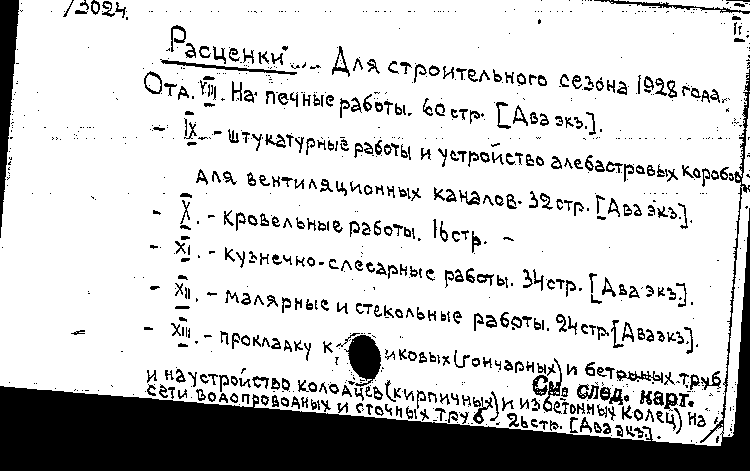 /3024.
II
Расценки ..... Для строительного сезона 1928 года.
Отд. VIII. На печные работы. 60 стр. [Два экз.].
- IX. - штукатурные работы и устройство алебастровых коробов
для вентиляционных каналов. 32 стр. [Два экз.].
- X. - кровельные работы. 16 стр. -
- XI. - кузнечно-слесарные работы. 34 стр. [Два экз.].
- XII. - малярные и стекольные работы. 24 стр. [Два экз.].
- XIII. - прокладку к иковых (гончарных) и бетонных труб
и на устройство колодцев (кирпичных) и из бетонных колец) на
См. след. карт.
сети водопроводных и сточных труб. - 26 стр. [Два экз.].